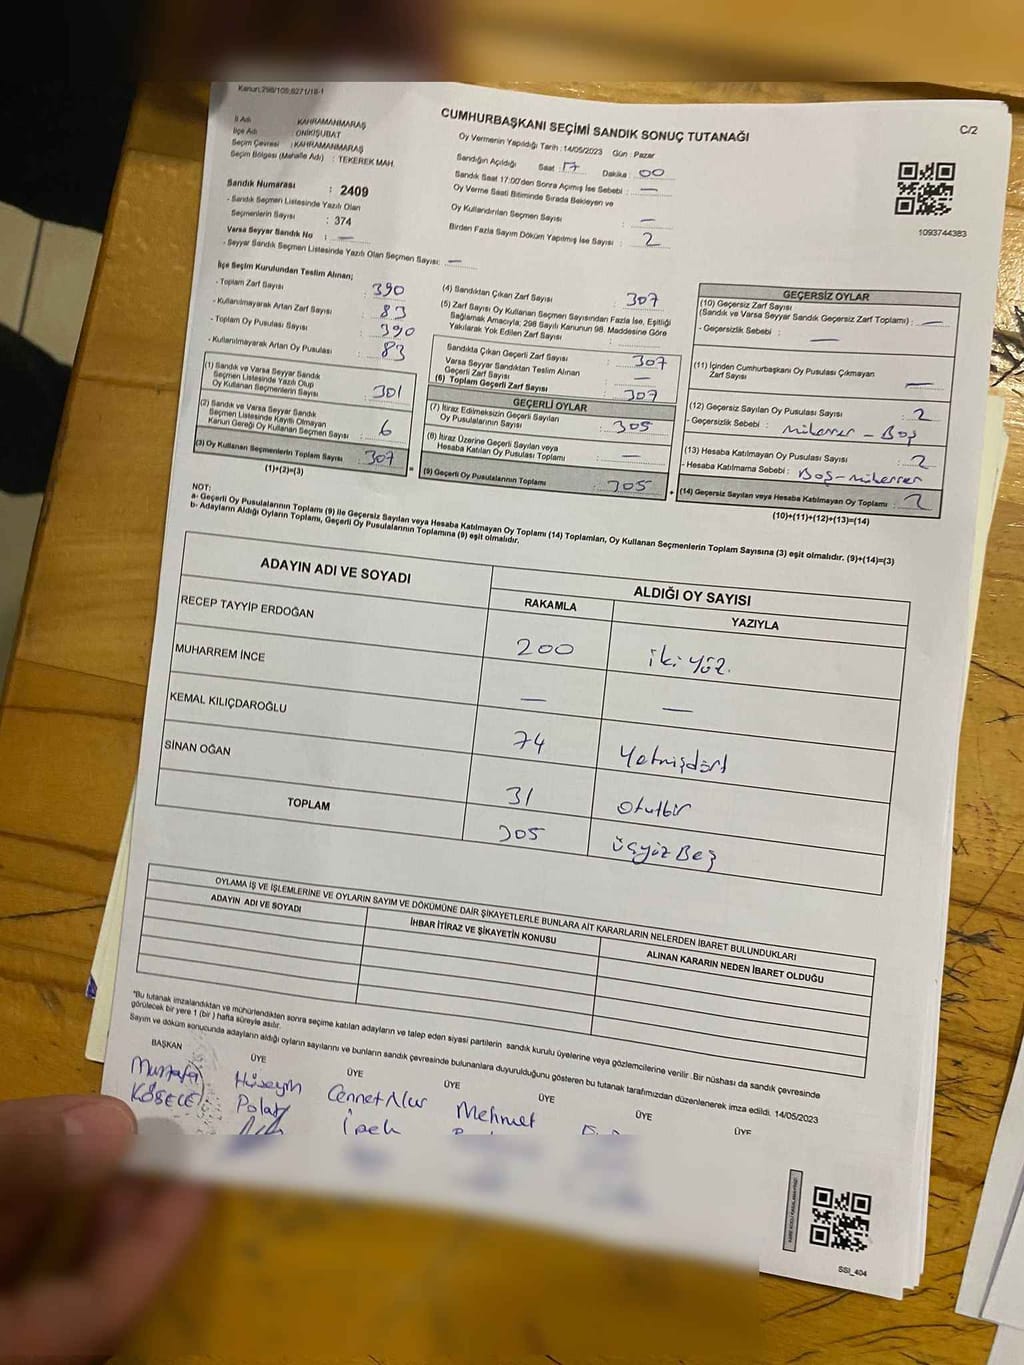 Kanun:298/105;6271/18-1
CUMHURBAŞKANI SEÇİMİ SANDIK SONUÇ TUTANAĞI
C/2
İl Adı : KAHRAMANMARAŞ
İlçe Adı : ONİKİŞUBAT
Seçim Çevresi : KAHRAMANMARAŞ
Seçim Bölgesi (Mahalle Adı) : TEKEREK MAH.
Oy Vermenin Yapıldığı Tarih : 14/05/2023 Gün : Pazar
Sandığın Açıldığı Saat : 17 Dakika : 00
Sandık Saat 17:00'den Sonra Açılmış İse Sebebi : —
Oy Verme Saati Bitiminde Sırada Bekleyen ve
Oy Kullandırılan Seçmen Sayısı : —
Birden Fazla Sayım Döküm Yapılmış İse Sayısı : 2
1093744383
Sandık Numarası : 2409
- Sandık Seçmen Listesinde Yazılı Olan
Seçmenlerin Sayısı : 374
Varsa Seyyar Sandık No : —
- Seyyar Sandık Seçmen Listesinde Yazılı Olan Seçmen Sayısı: —
İlçe Seçim Kurulundan Teslim Alınan;
- Toplam Zarf Sayısı : 390
- Kullanılmayarak Artan Zarf Sayısı : 83
- Toplam Oy Pusulası Sayısı : 390
- Kullanılmayarak Artan Oy Pusulası : 83
(1) Sandık ve Varsa Seyyar Sandık
Seçmen Listesinde Yazılı Olup
Oy Kullanan Seçmenlerin Sayısı : 301
(2) Sandık ve Varsa Seyyar Sandık
Seçmen Listesinde Kayıtlı Olmayan
Kanun Gereği Oy Kullanan Seçmen Sayısı : 6
(3) Oy Kullanan Seçmenlerin Toplam Sayısı : 307
(1)+(2)=(3)
(4) Sandıktan Çıkan Zarf Sayısı : 307
(5) Zarf Sayısı Oy Kullanan Seçmen Sayısından Fazla İse, Eşitliği
Sağlamak Amacıyla; 298 Sayılı Kanunun 98. Maddesine Göre
Yakılarak Yok Edilen Zarf Sayısı :
Sandıkta Çıkan Geçerli Zarf Sayısı : 307
Varsa Seyyar Sandıktan Teslim Alınan
Geçerli Zarf Sayısı : —
(6) Toplam Geçerli Zarf Sayısı : 307
GEÇERLİ OYLAR
(7) İtiraz Edilmeksizin Geçerli Sayılan
Oy Pusulalarının Sayısı : 305
(8) İtiraz Üzerine Geçerli Sayılan veya
Hesaba Katılan Oy Pusulası Toplamı : —
(9) Geçerli Oy Pusulalarının Toplamı : 305
GEÇERSİZ OYLAR
(10) Geçersiz Zarf Sayısı
(Sandık ve Varsa Seyyar Sandık Geçersiz Zarf Toplamı) : —
- Geçersizlik Sebebi : —
(11) İçinden Cumhurbaşkanı Oy Pusulası Çıkmayan
Zarf Sayısı : —
(12) Geçersiz Sayılan Oy Pusulası Sayısı : 2
- Geçersizlik Sebebi : Mükerrer – Boş
(13) Hesaba Katılmayan Oy Pusulası Sayısı : 2
- Hesaba Katılmama Sebebi : Boş – Mükerrer
(14) Geçersiz Sayılan veya Hesaba Katılmayan Oy Toplamı : 2
(10)+(11)+(12)+(13)=(14)
NOT:
a- Geçerli Oy Pusulalarının Toplamı (9) ile Geçersiz Sayılan veya Hesaba Katılmayan Oy Toplamı (14) Toplamları, Oy Kullanan Seçmenlerin Toplam Sayısına (3) eşit olmalıdır. (9)+(14)=(3)
b- Adayların Aldığı Oyların Toplamı, Geçerli Oy Pusulalarının Toplamına (9) eşit olmalıdır.
ADAYIN ADI VE SOYADI
ALDIĞI OY SAYISI
RAKAMLA YAZIYLA
RECEP TAYYİP ERDOĞAN 200 iki yüz.
MUHARREM İNCE — —
KEMAL KILIÇDAROĞLU 74 Yetmişdört
SİNAN OĞAN 31 Otuzbir
TOPLAM 305 üçyüz Beş
OYLAMA İŞ VE İŞLEMLERİNE VE OYLARIN SAYIM VE DÖKÜMÜNE DAİR ŞİKAYETLERLE BUNLARA AİT KARARLARIN NELERDEN İBARET BULUNDUKLARI
ADAYIN ADI VE SOYADI İHBAR İTİRAZ VE ŞİKAYETİN KONUSU ALINAN KARARIN NEDEN İBARET OLDUĞU
*Bu tutanak imzalandıktan ve mühürlendikten sonra seçime katılan adayların ve talep eden siyasi partilerin sandık kurulu üyelerine veya gözlemcilerine verilir. Bir nüshası da sandık çevresinde
görülecek bir yere 1 (bir) hafta süreyle asılır.
Sayım ve döküm sonucunda adayların aldığı oyların sayılarını ve bunların sandık çevresinde bulunanlara duyurulduğunu gösteren bu tutanak tarafımızdan düzenlenerek imza edildi. 14/05/2023
BAŞKAN ÜYE ÜYE ÜYE ÜYE ÜYE ÜYE
Mustafa Hüseyin Cennet Nur Mehmet
KÖSECE Polat İpek
SSI_404